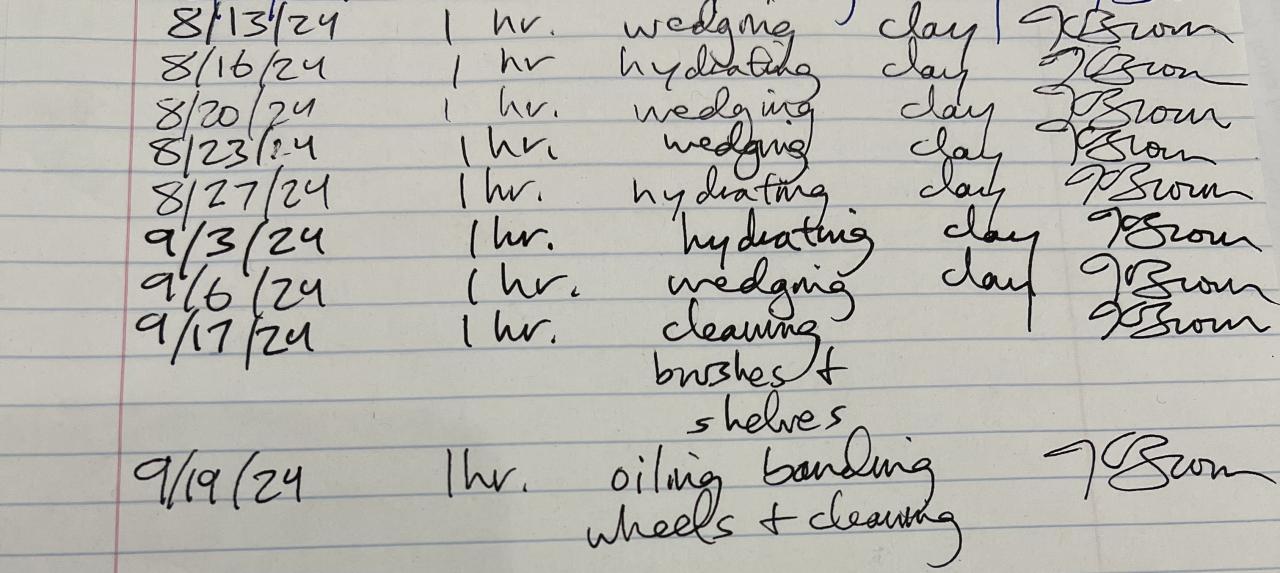 8/13/24 1 hr. wedging clay JCBrown
8/16/24 1 hr hydrating clay JCBrown
8/20/24 1 hr. wedging clay JCBrown
8/23/24 1 hr. wedging clay JCBrown
8/27/24 1 hr. hydrating clay JCBrown
9/3/24 1 hr. hydrating clay JCBrown
9/6/24 1 hr. wedging clay JCBrown
9/17/24 1 hr. cleaning JCBrown
brushes +
shelves
9/19/24 1 hr. oiling banding JCBrown
wheels + cleaning